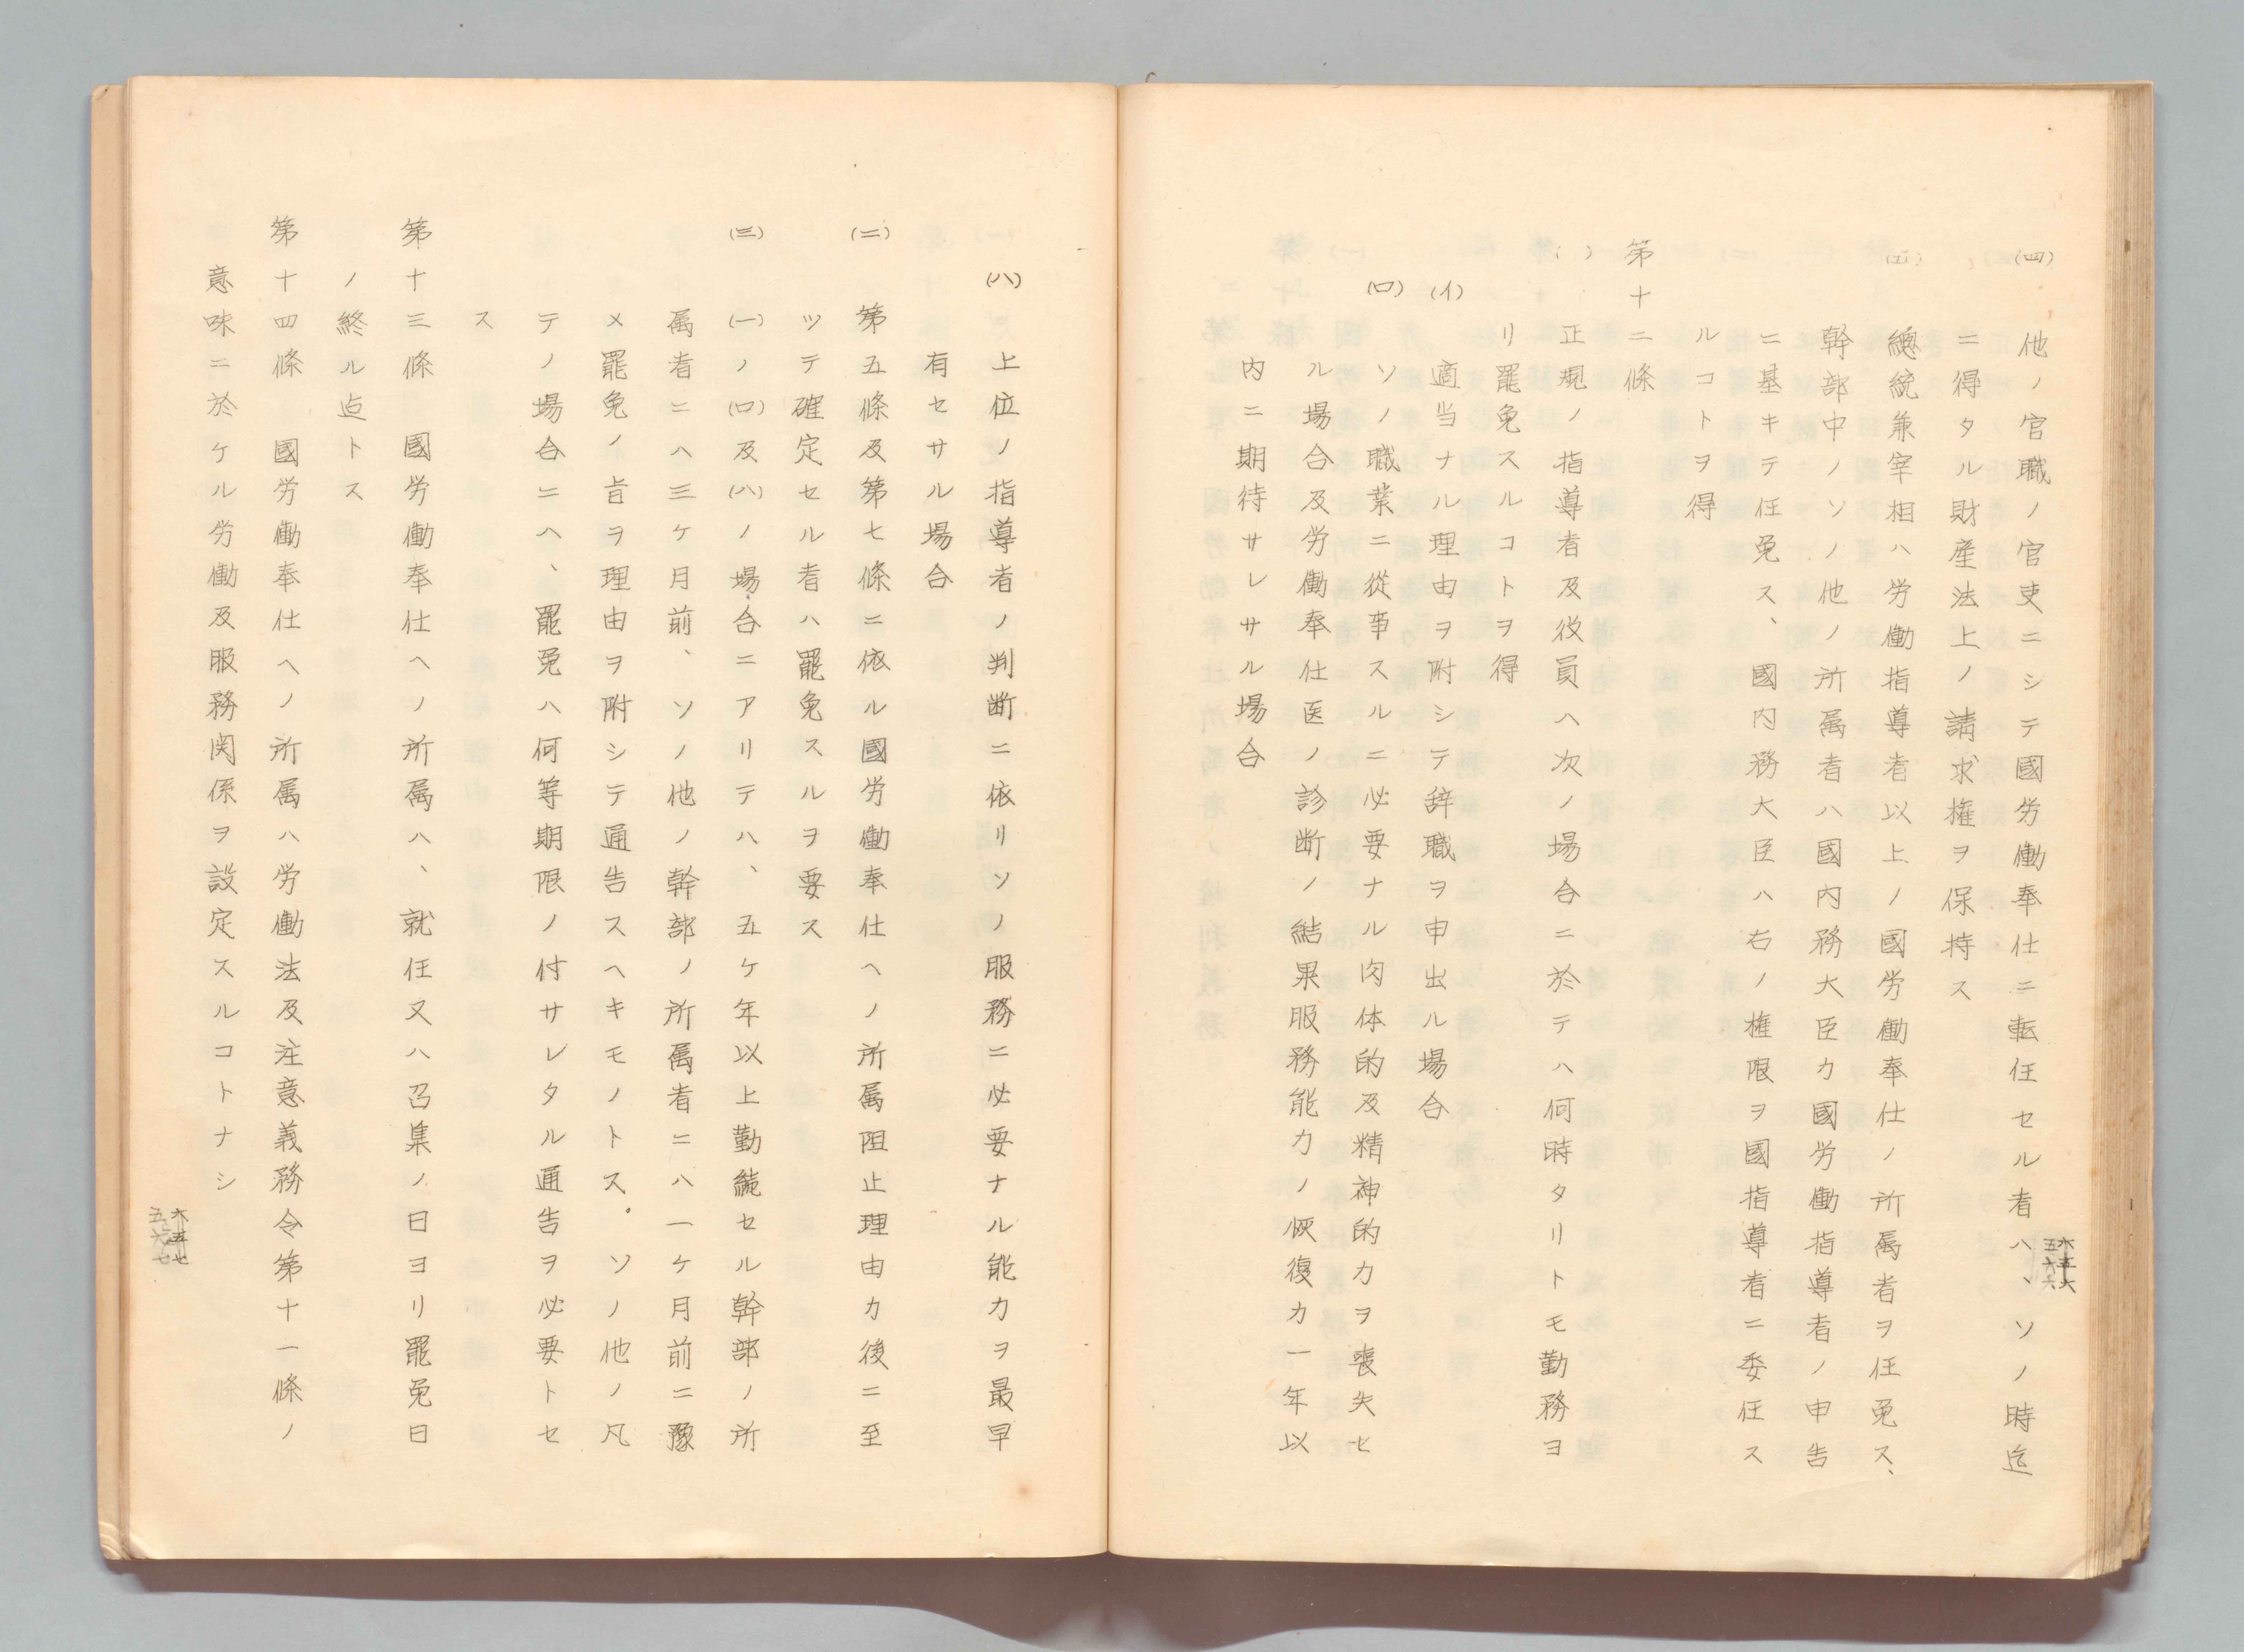 (四) 他ノ官職ノ官吏ニシテ國労働奉仕ニ転任セル者ハ、ソノ時迄
ニ得タル財産法上ノ請求権ヲ保持ス
(五) 總統兼宰相ハ労働指導者以上ノ國労働奉仕ノ所属者ヲ任免ス、
幹部中ノソノ他ノ所属者ハ國内務大臣カ國労働指導者ノ申告
ニ基キテ任免ス、國内務大臣ハ右ノ権限ヲ國指導者ニ委任ス
ルコトヲ得
第十二條
( ) 正規ノ指導者及役員ハ次ノ場合ニ於テハ何時タリトモ勤務ヨ
リ罷免スルコトヲ得
(イ) 適当ナル理由ヲ附シテ辞職ヲ申出ル場合
(ロ) ソノ職業ニ從事スルニ必要ナル肉体的及精神的力ヲ喪失セ
ル場合及労働奉仕医ノ診断ノ結果服務能力ノ恢復カ一年以
内ニ期待サレサル場合
(ハ) 上位ノ指導者ノ判断ニ依リソノ服務ニ必要ナル能力ヲ最早
有セサル場合
(二) 第五條及第七條ニ依ル國労働奉仕ヘノ所属阻止理由カ後ニ至
ツテ確定セル者ハ罷免スルヲ要ス
(三) (一)ノ(ロ)及(ハ)ノ場合ニアリテハ、五ケ年以上勤続セル幹部ノ所
属者ニハ三ケ月前、ソノ他ノ幹部ノ所属者ニハ一ケ月前ニ豫
メ罷免ノ旨ヲ理由ヲ附シテ通告スヘキモノトス。ソノ他ノ凡
テノ場合ニハ、罷免ハ何等期限ノ付サレタル通告ヲ必要トセ
ス
第十三條 國労働奉仕ヘノ所属ハ、就任又ハ召集ノ日ヨリ罷免日
ノ終ル迄トス
第十四條 國労働奉仕ヘノ所属ハ労働法及注意義務令第十一條ノ
意味ニ於ケル労働及服務関係ヲ設定スルコトナシ